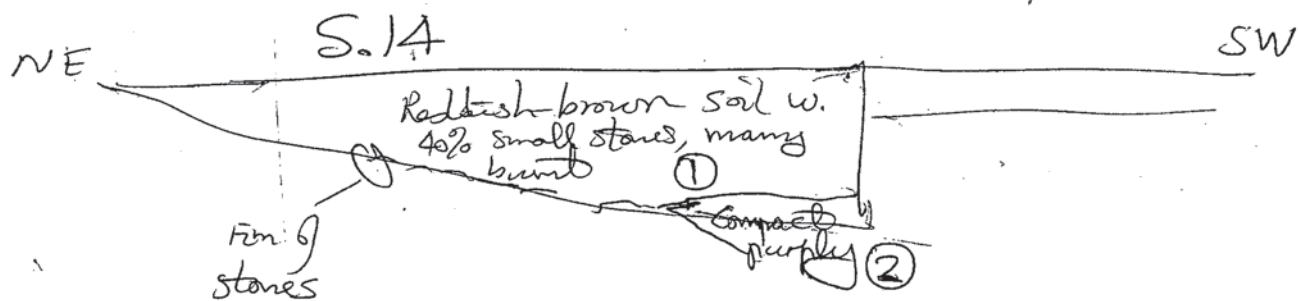 NE
S.14
SW
Reddish-brown soil w.
40% small stones, many
burnt
①
Compact
purply
②
stones